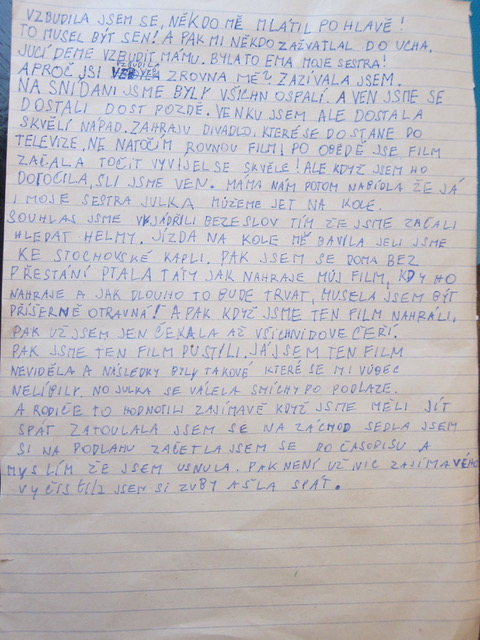 VZBUDILA JSEM SE, NĚKDO MĚ MLÁTIL PO HLAVĚ!
TO MUSEL BÝT SEN! A PAK MI NĚKDO ZAŽVATLAL DO UCHA,
JUCÍ DEME VZBUDIT MÁMU. BYLA TO EMA MOJE SESTRA!
A PROČ JSI VZBUDILA ZROVNA MĚ? ZAZÍVALA JSEM.
NA SNÍDANI JSME BYLY VŠICHN OSPALÍ. A VEN JSME SE
DOSTALI DOST POZDĚ. VENKU JSEM ALE DOSTALA
SKVĚLÍ NÁPAD. ZAHRAJU DIVADLO, KTERÉ SE DOSTANE DO
TELEVIZE, NE NATOČÍM ROVNOU FILM! PO OBĚDĚ JSE FILM
ZAČALA TOČIT VYVÍJEL SE SKVĚLE! ALE KDYŽ JSEM HO
DOTOČILA, ŠLI JSME VEN. MÁMA NÁM POTOM NABÍDLA ŽE JÁ
I MOJE SESTRA JULKA MŮŽEME JET NA KOLE.
SOUHLAS JSME VYJÁDŘILI BEZE SLOV TÍM ŽE JSME ZAČALI
HLEDAT HELMY. JÍZDA NA KOLE MĚ BAVILA JELI JSME
KE STOCHOVSKÉ KAPLI. PAK JSEM SE DOMA BEZ
PŘESTÁNÍ PTALA TÁTY JAK NAHRAJE MŮJ FILM, KDY HO
NAHRAJE A JAK DLOUHO TO BUDE TRVAT, MUSELA JSEM BÝT
PŘÍŠERNĚ OTRAVNÁ! A PAK KDYŽ JSME TEN FILM NAHRÁLI,
PAK UŽ JSEM JEN ČEKALA AŽ VŠICHNI DOVEČEŘÍ.
PAK JSME TEN FILM PUSTILI. JÁ JSEM TEN FILM
NEVIDĚLA A NÁSLEDKY BYLY TAKOVÉ KTERÉ SE MI VŮBEC
NELÍBILY. NO JULKA SE VÁLELA SMÍCHY PO PODLAZE.
A RODIČE TO HODNOTILI ZAJÍMAVĚ KDYŽ JSME MĚLI JÍT
SPÁT ZATOULALA JSEM SE NA ZÁCHOD SEDLA JSEM
SI NA PODLAHU ZAČETLA JSEM SE DO ČASOPISU A
MYSLÍM ŽE JSEM USNULA. PAK NENÍ UŽ NIC ZAJÍMAVÉHO
VYČISTILA JSEM SI ZUBY A ŠLA SPÁT.